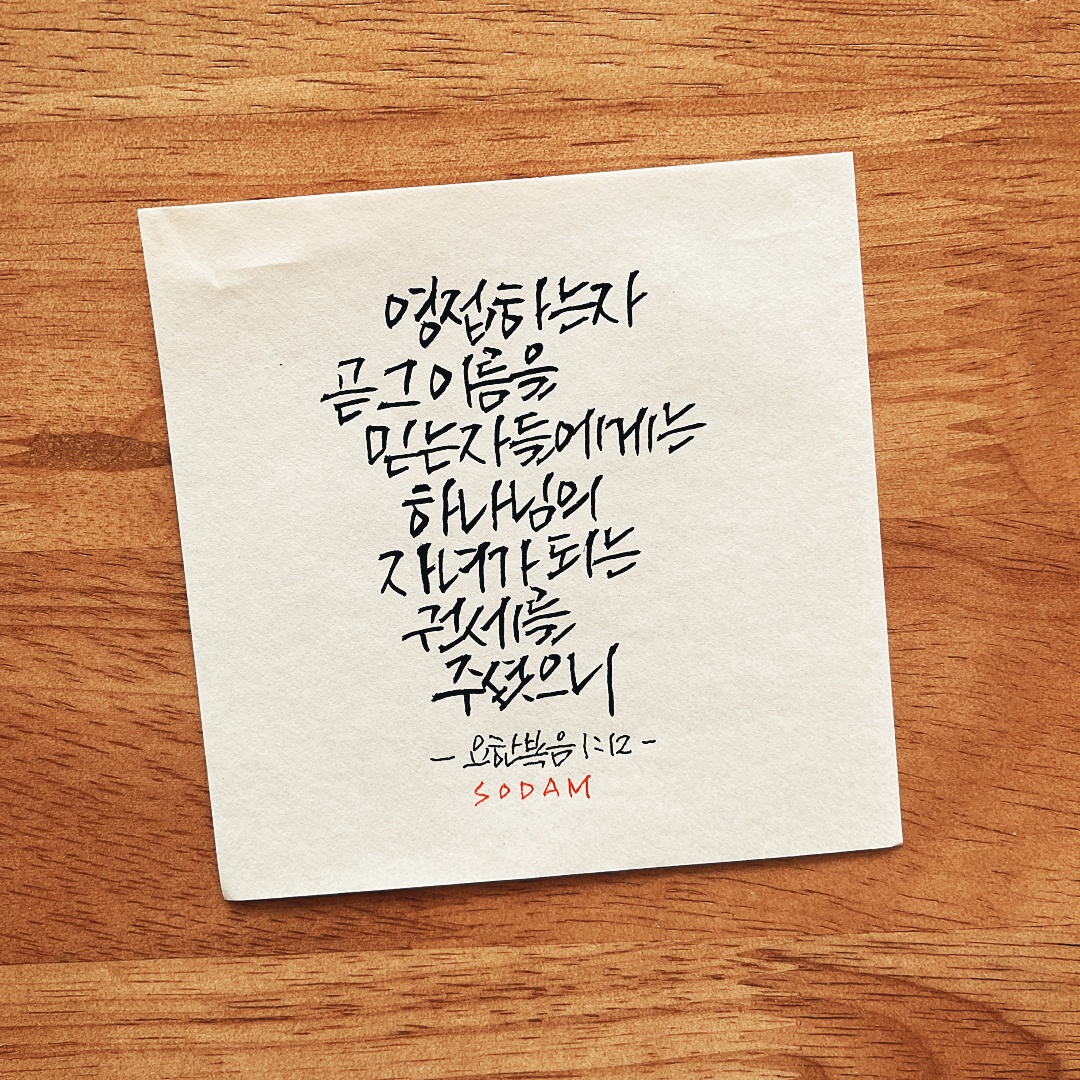 영접하는자
곧그이름을
믿는자들에게는
하나님의
자녀가되는
권세를
주셨으니
- 요한복음 1:12 -
SODAM